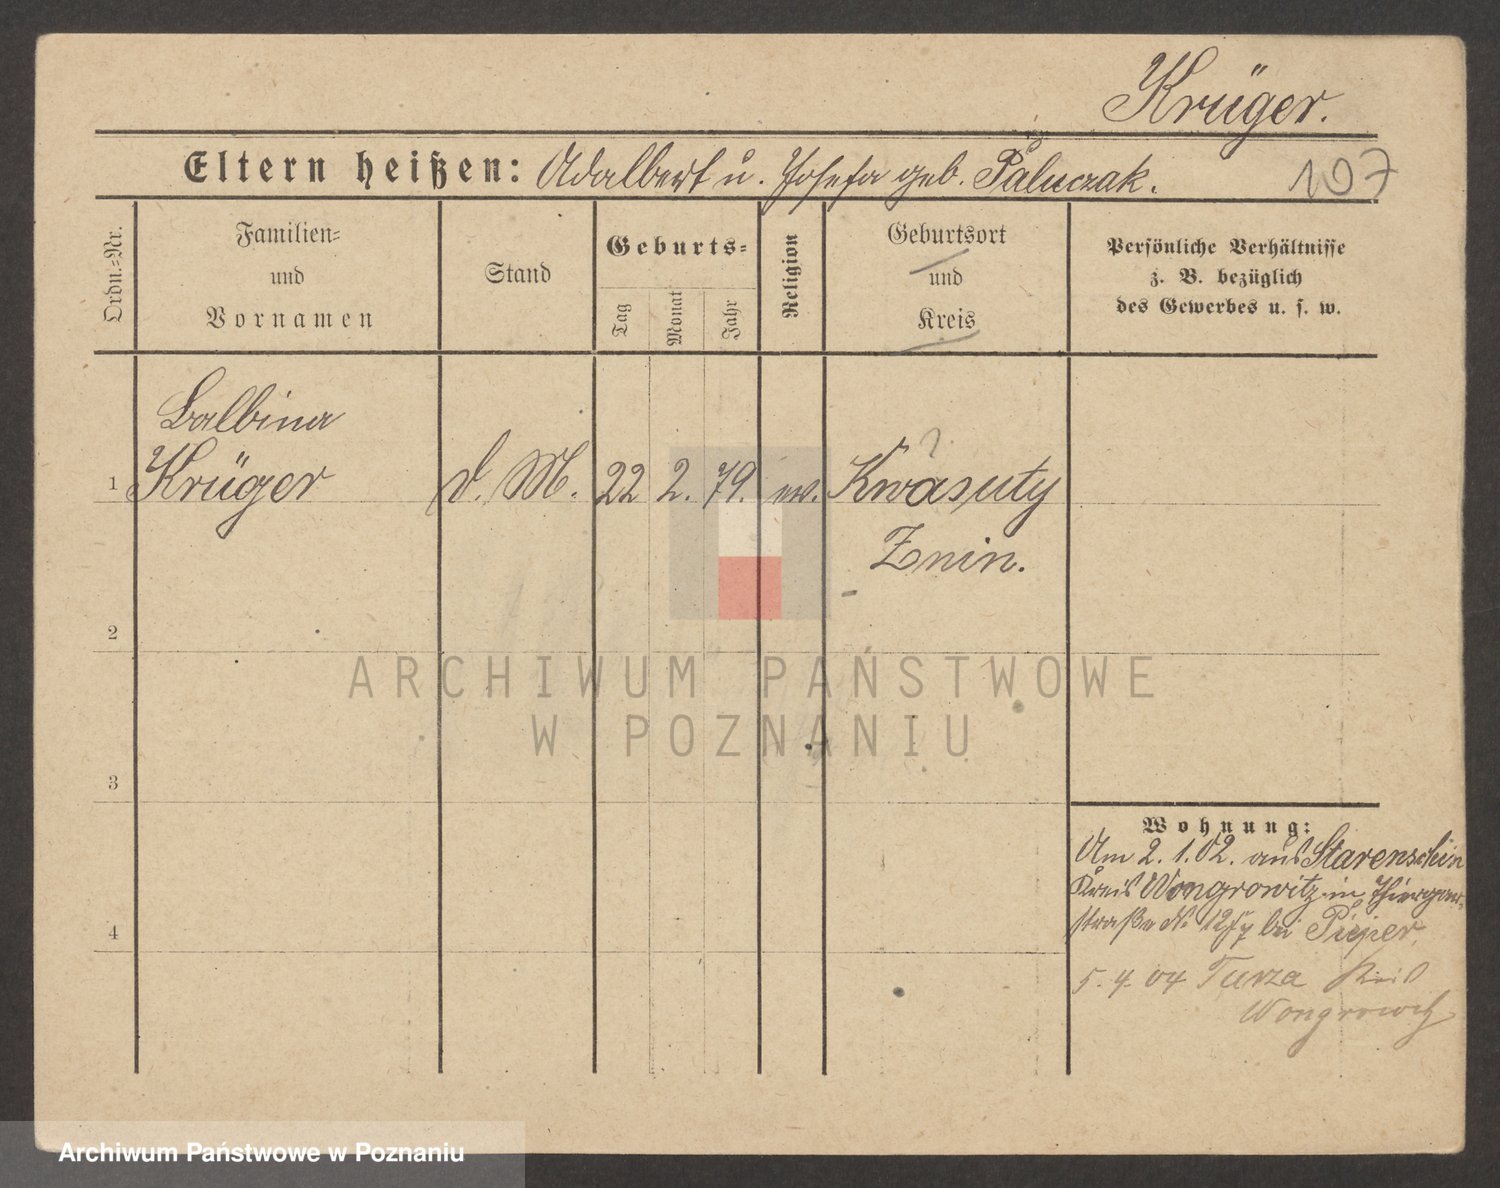 Krüger.
Eltern heißen: Adalbert u. Josefa geb. Paluczak.
107
Ordn.-Nr.
Familien-
und
Vornamen
Stand
Geburts-
Tag
Monat
Jahr
Religion
Geburtsort
und
Kreis
Persönliche Verhältnisse
z. B. bezüglich
des Gewerbes u. s. w.
Balbina
?
1 Krüger d. M. 22 2. 79. Kwasuty
Znin.
2
ARCHIWUM PAŃSTWOWE
W POZNANIU
3
Wohnung:
Am 2. 1. 02. aus Starenschein
Kreis Wongrowitz in Thiergar-
straße № bei Pieper.
5. 4. 04 Turza Kreis
Wongrowitz
4
Archiwum Państwowe w Poznaniu